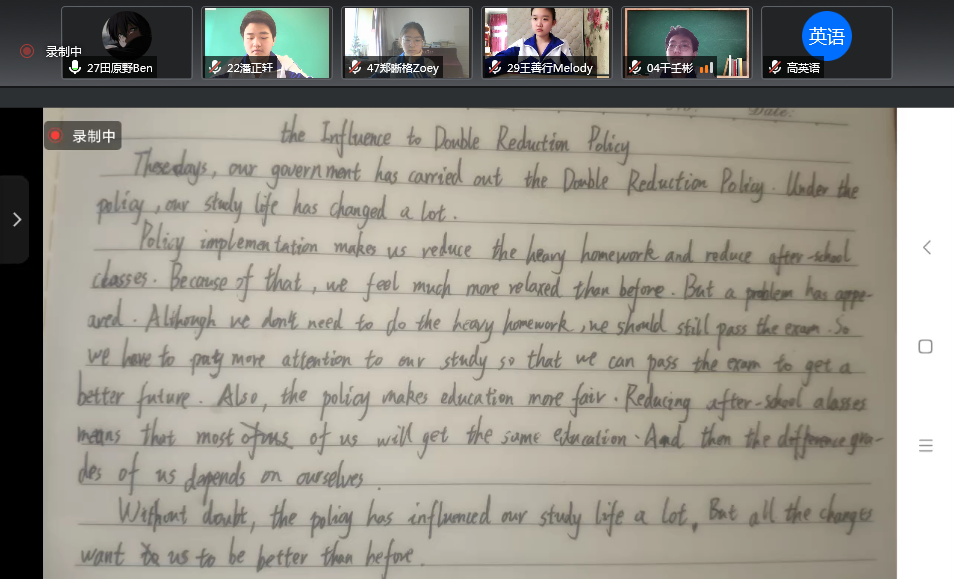 录制中
27田原野Ben
22潘正轩
47郑晰格Zoey
29王善行Melody
04干壬彬
英语
高英语
录制中
Date:
the Influence to Double Reduction Policy
These days, our government has carried out the Double Reduction Policy. Under the
policy, our study life has changed a lot.
Policy implementation makes us reduce the heavy homework and reduce after-school
classes. Because of that, we feel much more relaxed than before. But a problem has appe-
ared. Although we don't need to do the heavy homework, we should still pass the exam. So
we have to pay more attention to our study so that we can pass the exam to get a
better future. Also, the policy makes education more fair. Reducing after-school classes
means that most of us will get the same education. And then the difference gra-
des of us depends on ourselves.
Without doubt, the policy has influenced our study life a lot. But all the changes
want us to be better than before.